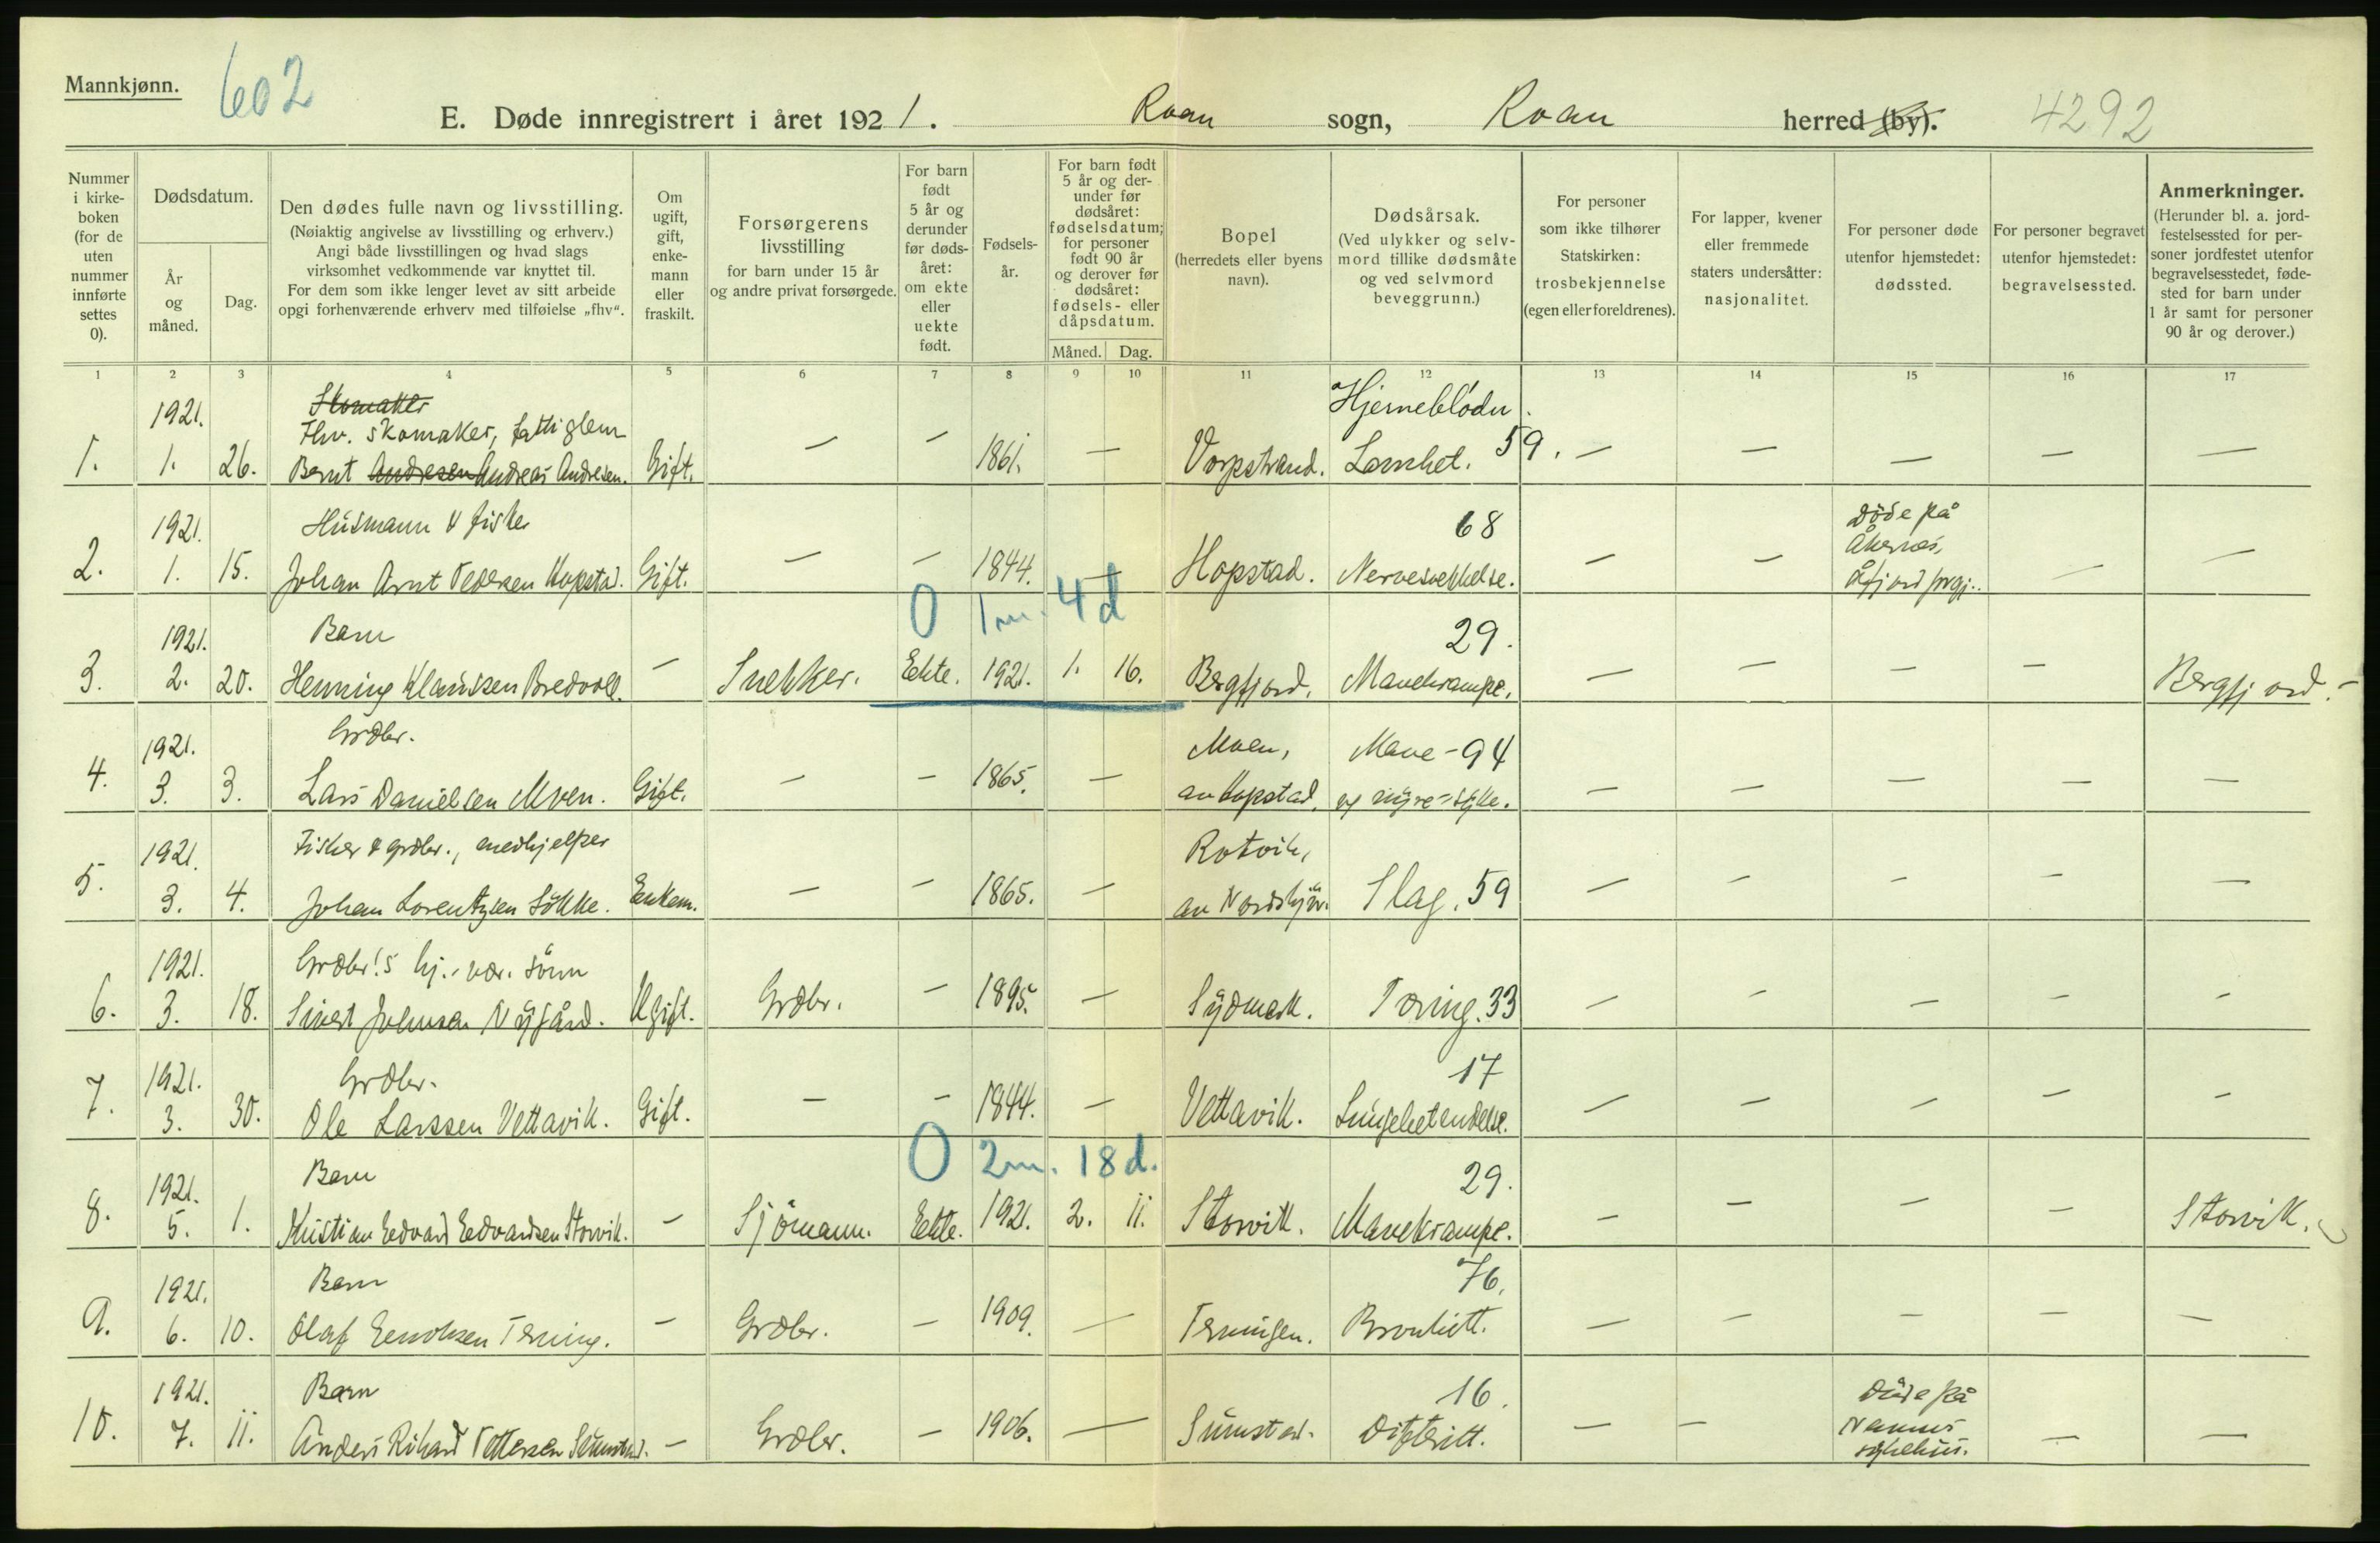 Mannkjønn.
602
E. Døde innregistrert i året 1921. Roan sogn, Roan herred (by).
4292
Nummer i kirke-boken (for de uten nummer innførte settes 0).
Dødsdatum.
År og måned.
Dag.
Den dødes fulle navn og livsstilling.
(Nøiaktig angivelse av livsstilling og erhverv.)
Angi både livsstillingen og hvad slags
virksomhet vedkommende var knyttet til.
For dem som ikke lenger levet av sitt arbeide
opgi forhenværende erhverv med tilføielse „fhv“.
Om ugift, gift, enke-mann eller fraskilt.
Forsørgerens livsstilling
for barn under 15 år
og andre privat forsørgede.
For barn født 5 år og derunder før døds-året: om ekte eller uekte født.
Fødsels-år.
For barn født 5 år og der-under før dødsåret: fødselsdatum; for personer født 90 år og derover før dødsåret: fødsels- eller dåpsdatum.
Måned. Dag.
Bopel
(herredets eller byens navn).
Dødsårsak.
(Ved ulykker og selv-mord tillike dødsmåte og ved selvmord beveggrunn.)
For personer som ikke tilhører Statskirken: trosbekjennelse (egen eller foreldrenes).
For lapper, kvener eller fremmede staters undersåtter: nasjonalitet.
For personer døde utenfor hjemstedet: dødssted.
For personer begravet utenfor hjemstedet: begravelsessted.
Anmerkninger.
(Herunder bl. a. jord-festelsessted for per-soner jordfestet utenfor begravelsesstedet, føde-sted for barn under 1 år samt for personer 90 år og derover.)
1 2 3 4 5 6 7 8 9 10 11 12 13 14 15 16 17
1921. Skomaker Hjerneblödn.
Fhv. skomaker, fattiglem
1. 1. 26. Bernt Andresen Andreas Andresen. Gift. — — 1861. — Vorpstrand. Lamhet. 59. — — — — —
1921. Husmann & fisker 68 Döde på
2. 1. 15. Johan Arnt Pedersen Hopstad. Gift. — — 1844. — Hopstad. Nervesvekkelse. — — Åkernes, Åfjord prgj. — —
0 1 m. 4 d
1921. Barn 29.
3. 2. 20. Henning Klaussen Bredvoll. — Snekker. Ekte. 1921. 1. 16. Bergfjord. Mavekrampe. — — — — Bergfjord. —
1921. Grdbr. Moen, Mave- 94
4. 3. 3. Lars Danielsen Moen. Gift. — — 1865. — av Hopstad. og nyre-syke. — — — — —
1921. Fisker & grdbr., medhjelper Rotvik,
5. 3. 4. Johan Lorentzen Sökke. Enkem. — — 1865. — av Nordskjör. Slag. 59 — — — — —
1921. Grdbr's hj.-vær. sönn
6. 3. 18. Sivert Johnsen Nygård. Ugift. Grdbr. — 1895. — Sydmark. Tæring. 33 — — — — —
1921. Grdbr. 17
7. 3. 30. Ole Larssen Vettavik. Gift. — — 1844. — Vettavik. Lungebetendelse. — — — — —
0 2 m. 18 d.
1921. Barn 29.
8. 5. 1. Kristian Edvard Edvardsen Storvik. — Sjömann. Ekte. 1921. 2. 11. Storvik. Mavekrampe. — — — — Storvik.
1921. Barn 76.
9. 6. 10. Olaf Enoksen Terning. — Grdbr. — 1909. — Terningen. Bronkitt. — — — — —
1921. Barn 16. Döde på
10. 7. 11. Anders Rikard Pettersen Sumstad. — Grdbr. — 1906. — Sumstad. Difteritt. — — Namus sykehus. — —